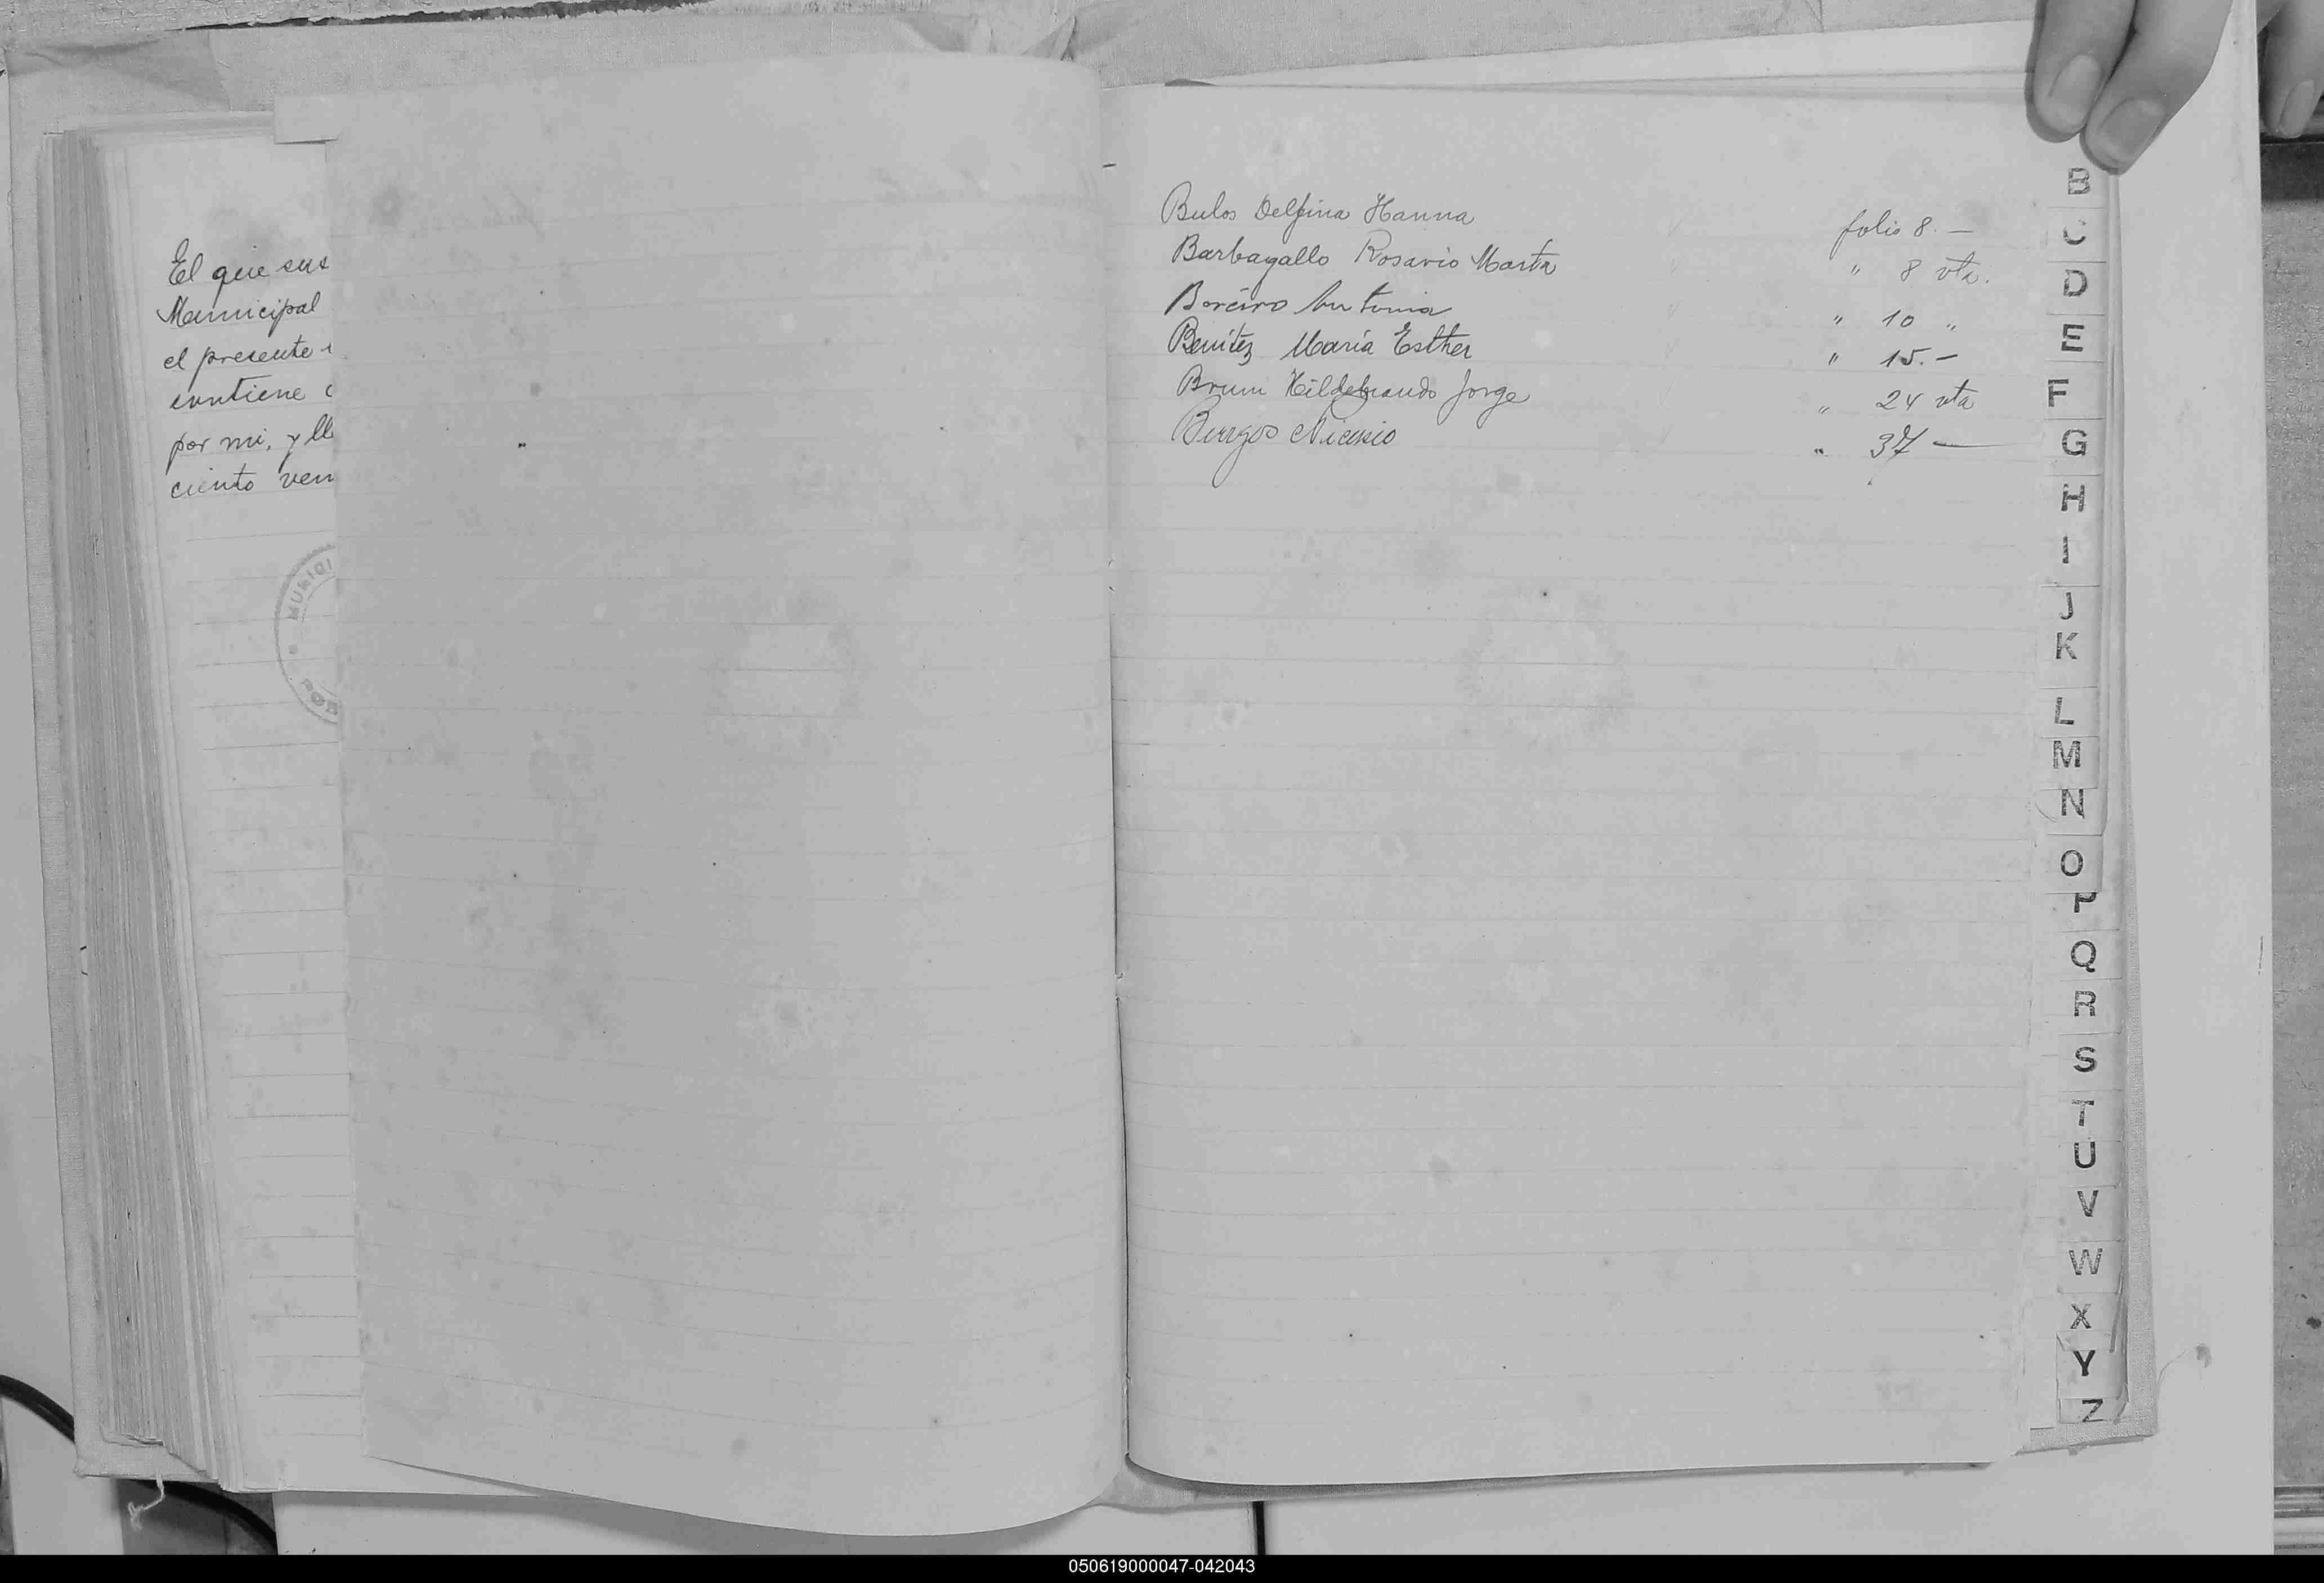 El que sus
Municipal
el presente
contiene
por mi, y lle
ciento vein
MUNICI
POB
Bulos Delfina Hanna folio 8. —
Barbagallo Rosario Marta " 8 vta.
Boreiro Antonia " 10 "
Benítez María Esther " 15. —
Brum Hildebrando Jorge " 24 vta
Burgos Nicasio " 37 —
B
C
D
E
F
G
H
I
J
K
L
M
N
O
P
Q
R
S
T
U
V
W
X
Y
Z
050619000047-042043